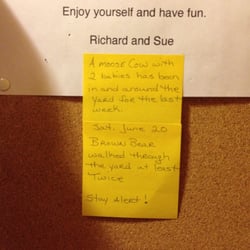 Enjoy yourself and have fun.
Richard and Sue
A moose cow with
2 babies has been
in and around the
yard for the last
week.
Sat. June 20
Brown Bear
walked through
the yard at least
Twice
Stay Alert!